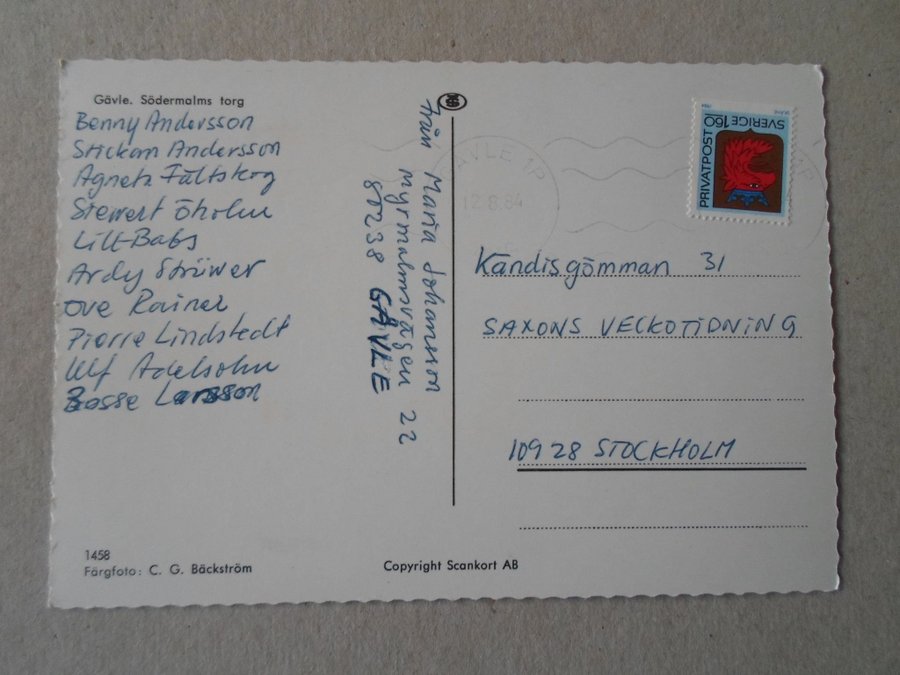 Gävle. Södermalms torg
Benny Andersson
Stickan Andersson
Agneta Fältskog
Stewert Öholm
Lill-Babs
Ardy Strüwer
Ove Rainer
Pierre Lindstedt
Ulf Adelsohn
Bosse Larsson
1458
Färgfoto: C. G. Bäckström
Från Maria Johansson
Myrmalmsvägen 22
80238 GÄVLE
Copyright Scankort AB
12.8.84
PRIVATPOST
SVERIGE 160
Kändisgömman 31
SAXONS VECKOTIDNING
109 28 STOCKHOLM